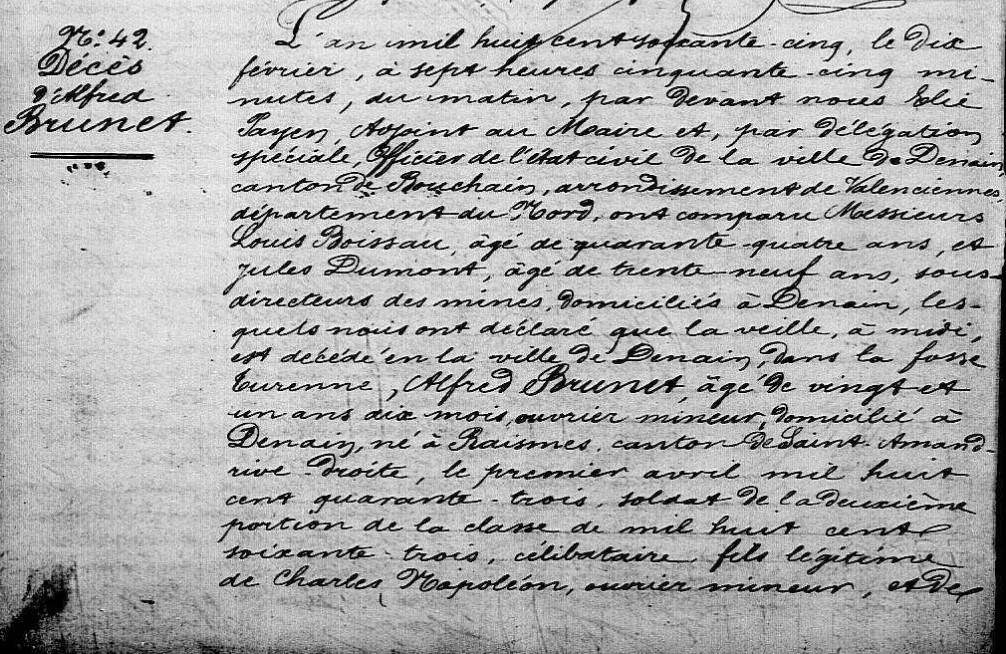 N.º 42.
Décès
d'Alfred
Brunet.
L'an mil huit cent soixante-cinq, le dix
février, à sept heures cinquante-cinq mi-
nutes, du matin, par devant nous Elie
Payen, Adjoint au Maire et, par délégation
spéciale, Officier de l'état civil de la ville de Denain,
canton de Bouchain, arrondissement de Valenciennes,
département du Nord, ont comparu Messieurs
Louis Boissau, âgé de quarante-quatre ans, et
Jules Dumont, âgé de trente-neuf ans, sous-
directeurs des mines, domiciliés à Denain, les-
quels nous ont déclaré que la veille, à midi,
est décédé en la ville de Denain, dans la fosse
Turenne, Alfred Brunet, âgé de vingt et
un ans dix mois, ouvrier mineur, domicilié à
Denain, né à Raismes, canton de Saint-Amand-
rive-droite, le premier avril mil huit
cent quarante-trois, soldat de la deuxième
portion de la classe de mil huit cent
soixante-trois, célibataire, fils légitime
de Charles Napoléon, ouvrier mineur, et de